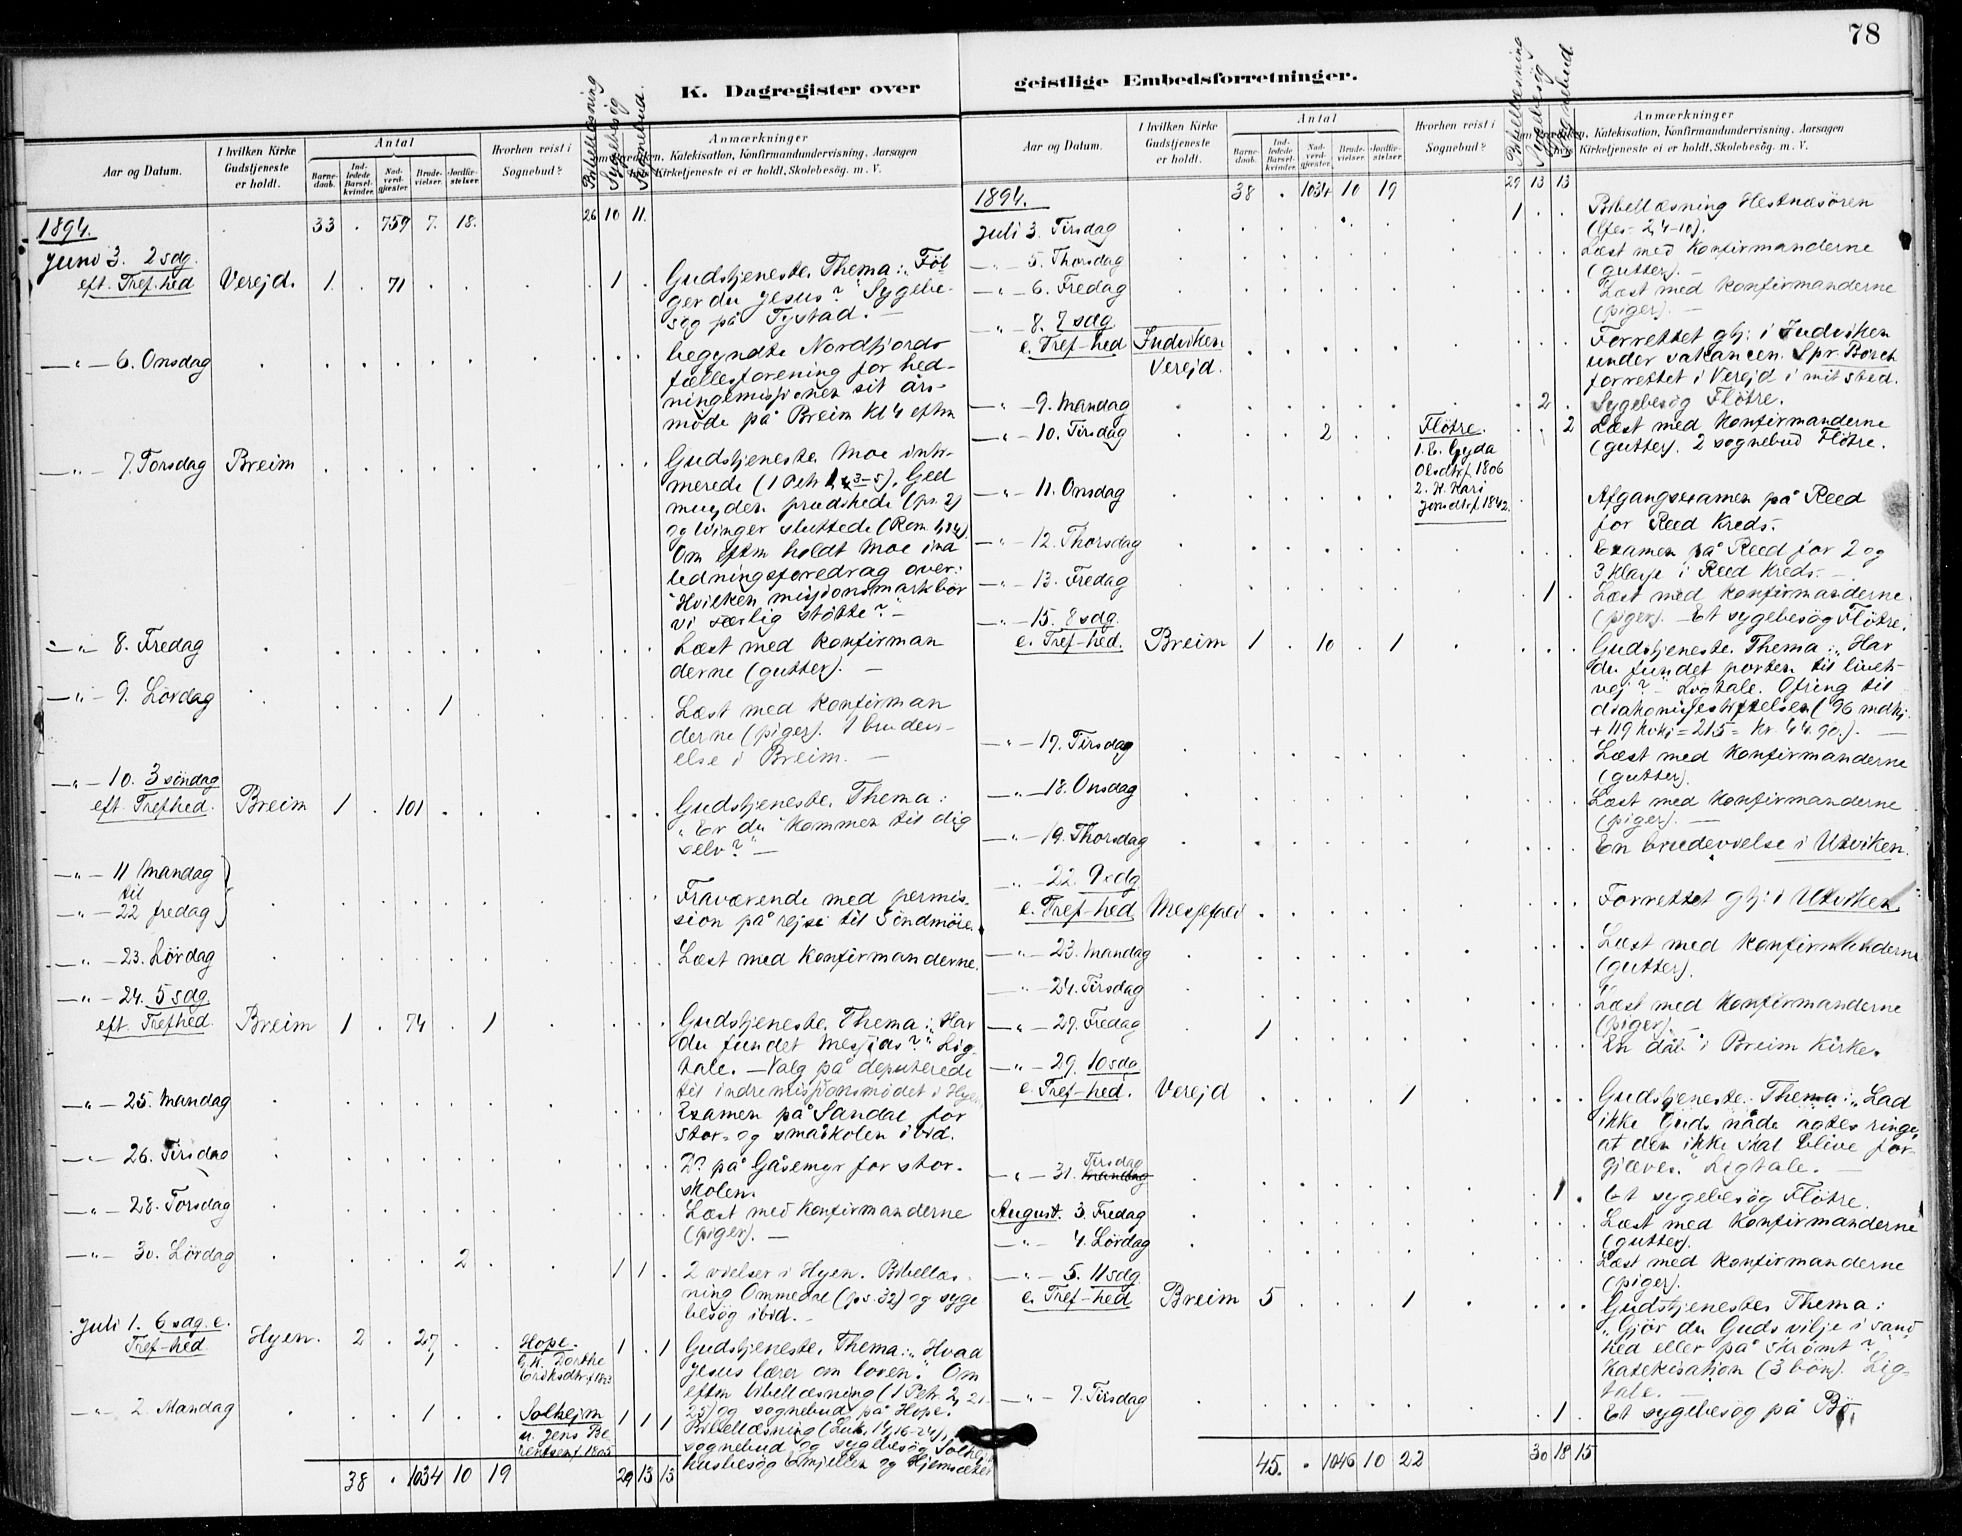 78
K. Dagregister over
Aar og Datum.
I hvilken Kirke
Gudstjeneste
er holdt.
Antal
Barne-
daab.
Ind-
ledede
Barsel-
kvinder.
Nad-
verd-
gjæster.
Brude-
vielser.
Jordfæ-
stelser.
Hvorhen reist i
Sognebud?
Bibellæsning
Sygebesøg
Sognebud.
Anmærkninger
Katekisation, Konfirmandundervisning. Aarsagen
Kirketjeneste ei er holdt. Skolebesög. m. V.
1894. 33 . 759 7. 18. 26 10 11.
Juni 3. 2 sdg.
eft. Tref.hed Verejd. 1. . 71 . . . . 1 . Gudstjeneste. Thema: "Føl
ger du Jesus?" Sygebe-
søg på Tystad. —
— " — 6. Onsdag begyndte Nordfjords
fællesforening for hed-
ningemissionen sit års-
møde på Breim Kl 4 eftm
— " — 7. Torsdag Breim Gudstjeneste. Moe inti-
merede (1 Petr. 1, 3-5). Ged
mundsen prædikede (ps. 2)
og Winger sluttede (Rom. 1,14).
Om eftm holdt Moe ind
ledningsforedrag over:
"Hvilken missionsmark bør
vi særlig støtte?" —
— " — 8. Fredag Læst med konfirman
derne (gutter). —
— " — 9. Lørdag 1 Læst med konfirman
derne (piger). 1 brudevi-
else i Breim. —
— " — 10. 3 søndag
eft. Trefhed. Breim 1 . 101 Gudstjeneste. Thema:
"Er du kommen til dig
selv?" —
— " — 11 Mandag
til
— " — 22 fredag Fraværende med permis-
sion på rejse til Söndmöre.
— " — 23. Lørdag Læst med konfirmanderne.
— " — 24. 5 sdg.
eft. Trefhed. Breim 1 . 74 . 1 Gudstjeneste. Thema: "Har
du fundet Messias?" Lig-
tale. — Valg på deputerede
til indremissionsmødet i Hyen
— " — 25. Mandag Examen på Sandal for
stor- og småskolen ibid.
— " — 26. Tirsdag Do på Gåsemyr for stor-
skolen.
— " — 28. Torsdag Læst med konfirmanderne
(piger). —
— " — 30. Lørdag 2 1 1 . 2 vielser i Hyen. Bibellæs-
ning Ommedal (ps. 32) og syge
besøg ibid. —
Juli 1. 6 sdg. e.
Tref-hed Hyen. 2 . 27 . . Hope. 1 . 1 Gudstjeneste. Thema: "Hvad
1 G. K. Dorthe
Eriksdtr. f 1823 Jesus lærer om loven." Om
eftm bibellæsning (1 Petr. 2, 21-
25) og sognebud på Hope.
— " — 2. Mandag 1 Solheim 1 1 1 Bibellæsning (Luk. 14, 16-24),
u. Jens Be
rentsen f 1805 sognebud og sygebesøg Solheim
husbesøg Emjellen og Hjemsæter
38 . 1034 10 19 29 13 13
geistlige Embedsforretninger.
Aar og Datum.
I hvilken Kirke
Gudstjeneste
er holdt.
Antal
Barne-
daab.
Ind-
ledede
Barsel-
kvinder.
Nad-
verd-
gjæster.
Brude-
vielser.
Jordfæ-
stelser.
Hvorhen reist i
Sognebud?
Bibellæsning
Sygebesøg
Sognebud
Anmærkninger
Katekisation, Konfirmandundervisning. Aarsagen
hvis Kirketjeneste ei er holdt. Skolebesög. m. V.
1894. 38 . 1034 10 19 29 13 13
Juli 3. Tirsdag 1 . . Bibellæsning Hestnæsøren
(Efes. 2, 4-10).
— " — 5. Thorsdag Læst med konfirmanderne
(gutter). —
— " — 6. Fredag Læst med konfirmanderne
(piger). —
— " — 8. 7 sdg.
e. Tref-hed Indviken
Verejd. Forrettet gtj: i Indviken
under vakancen. Spr. Borch
forrettet i Verejd i mit sted.
— " — 9. Mandag . 2 . Sygebesøg Fløtre.
— " — 10. Tirsdag 2 Fløtre. . . 2 Læst med konfirmanderne
(gutter). 2 sognebud Fløtre.
1. E. Gyda
Olsdtr. f 1806
2. H. Kari
Jensdtr. f 1842.
— " — 11. Onsdag Afgangsexamen på Reed
for Reed Kreds. -
— " — 12. Thorsdag Examen på Reed for 2 og
3 klasse i Reed Kreds. —
— " — 13. Fredag . 1 . Læst med konfirmanderne
(piger). — Et sygebesøg Fløtre.
— " — 15. 8 sdg.
e. Tref-hed. Breim 1 . 10 . 1 Gudstjeneste. Thema: "Har
du fundet porten til livets
vej?" — Ligtale. Ofring til
diakonissestiftelsen (96 mdkj.
+ 119 kvkj = 215 = Kr. 44.90). —
— " — 17. Tirsdag Læst med konfirmanderne
(gutter).
— " — 18. Onsdag Læst med konfirmanderne
(piger). —
— " — 19. Thorsdag En brudevielse i Utviken.
— " — 22. 9 sdg
e. Tref-hed Messefald Forrettet gtj: i Utviken.
— " — 23. Mandag Læst med konfirmanderne
(gutter).
— " — 24. Tirsdag Læst med konfirmanderne
(piger). —
— " — 27. Fredag 1 En dåb i Breim Kirke.
— " — 29. 10 sdg
e. Tref-hed. Verejd 1 Gudstjeneste. Thema: "Lad
ikke Guds nåde agtes ringe,
at den ikke skal blive for-
gjæves." Ligtale. —
Tirsdag
— " — 31. Mandag . 1 . Et sygebesøg Fløtre.
August. 3. Fredag Læst med konfirmanderne
(gutter).
— " — 4. Lørdag Læst med konfirmanderne
(piger).
— " — 5. 11 sdg.
e. Tref-hed Breim 5 . . . 1 Gudstjeneste. Thema:
"Gjør du Guds vilje i sand
hed eller på skrømt?"
Katekisation (3 bøn). Lig-
tale. —
— " — 7. Tirsdag . 1 . Et sygebesøg på Bø.
45. . 1046 10 22 30 18 15